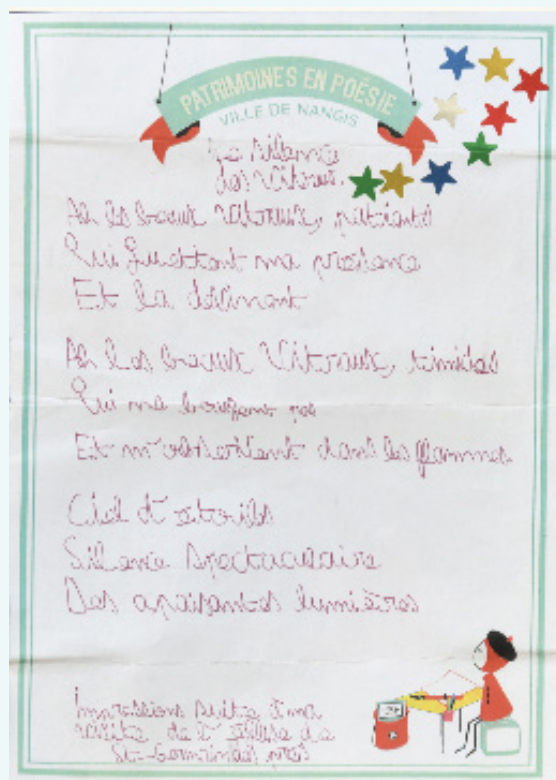 PATRIMOINES EN POÉSIE
VILLE DE NANGIS
Le silence
des Vitraux.
Ah les beaux Vitraux, patients
Qui guettent ma présence
Et la devinent
Ah les beaux Vitraux, timides
Qui ne bougent pas
Et m'observent dans les flammes
Ciel d'étoiles
Silence spectaculaire
Des apaisantes lumières
Impressions suite à ma
visite de l'église de
St-Germain des prés